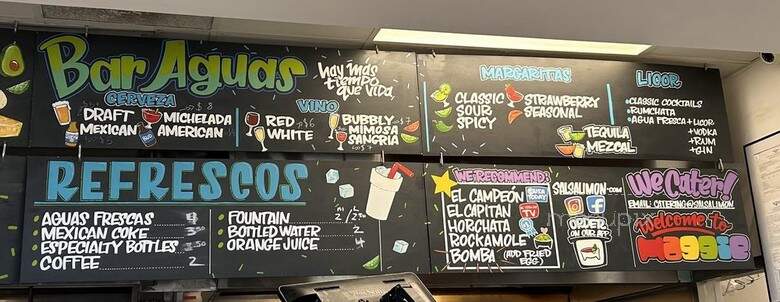 Bar Aguas
Hay más
tiempo
que vida
CERVEZA
$8
DRAFT
MEXICAN
MICHELADA
AMERICAN
VINO
RED $6
WHITE
BUBBLY
MIMOSA
SANGRIA
MARGARITAS
CLASSIC
SOUR
SPICY
STRAWBERRY
SEASONAL
TEQUILA
MEZCAL
LIQOR
CLASSIC COCKTAILS
RUMCHATA
AGUA FRESCA + LIQOR
+VODKA
+RUM
+GIN
REFRESCOS
AGUAS FRESCAS 4
MEXICAN COKE 3.50
ESPECIALTY BOTTLES 3.50
COFFEE 2
FOUNTAIN 2/2.50
BOTTLED WATER 2
ORANGE JUICE 4
WE RECOMMEND:
EL CAMPEÓN
EL CAPITAN
HORCHATA
ROCKAMOLE
BOMBA (ADD FRIED EGG)
SALSALIMON.COM
ORDER
ON OUR APP
We Cater!
EMAIL: CATERING@SALSALIMON
Welcome to
MAGGIE